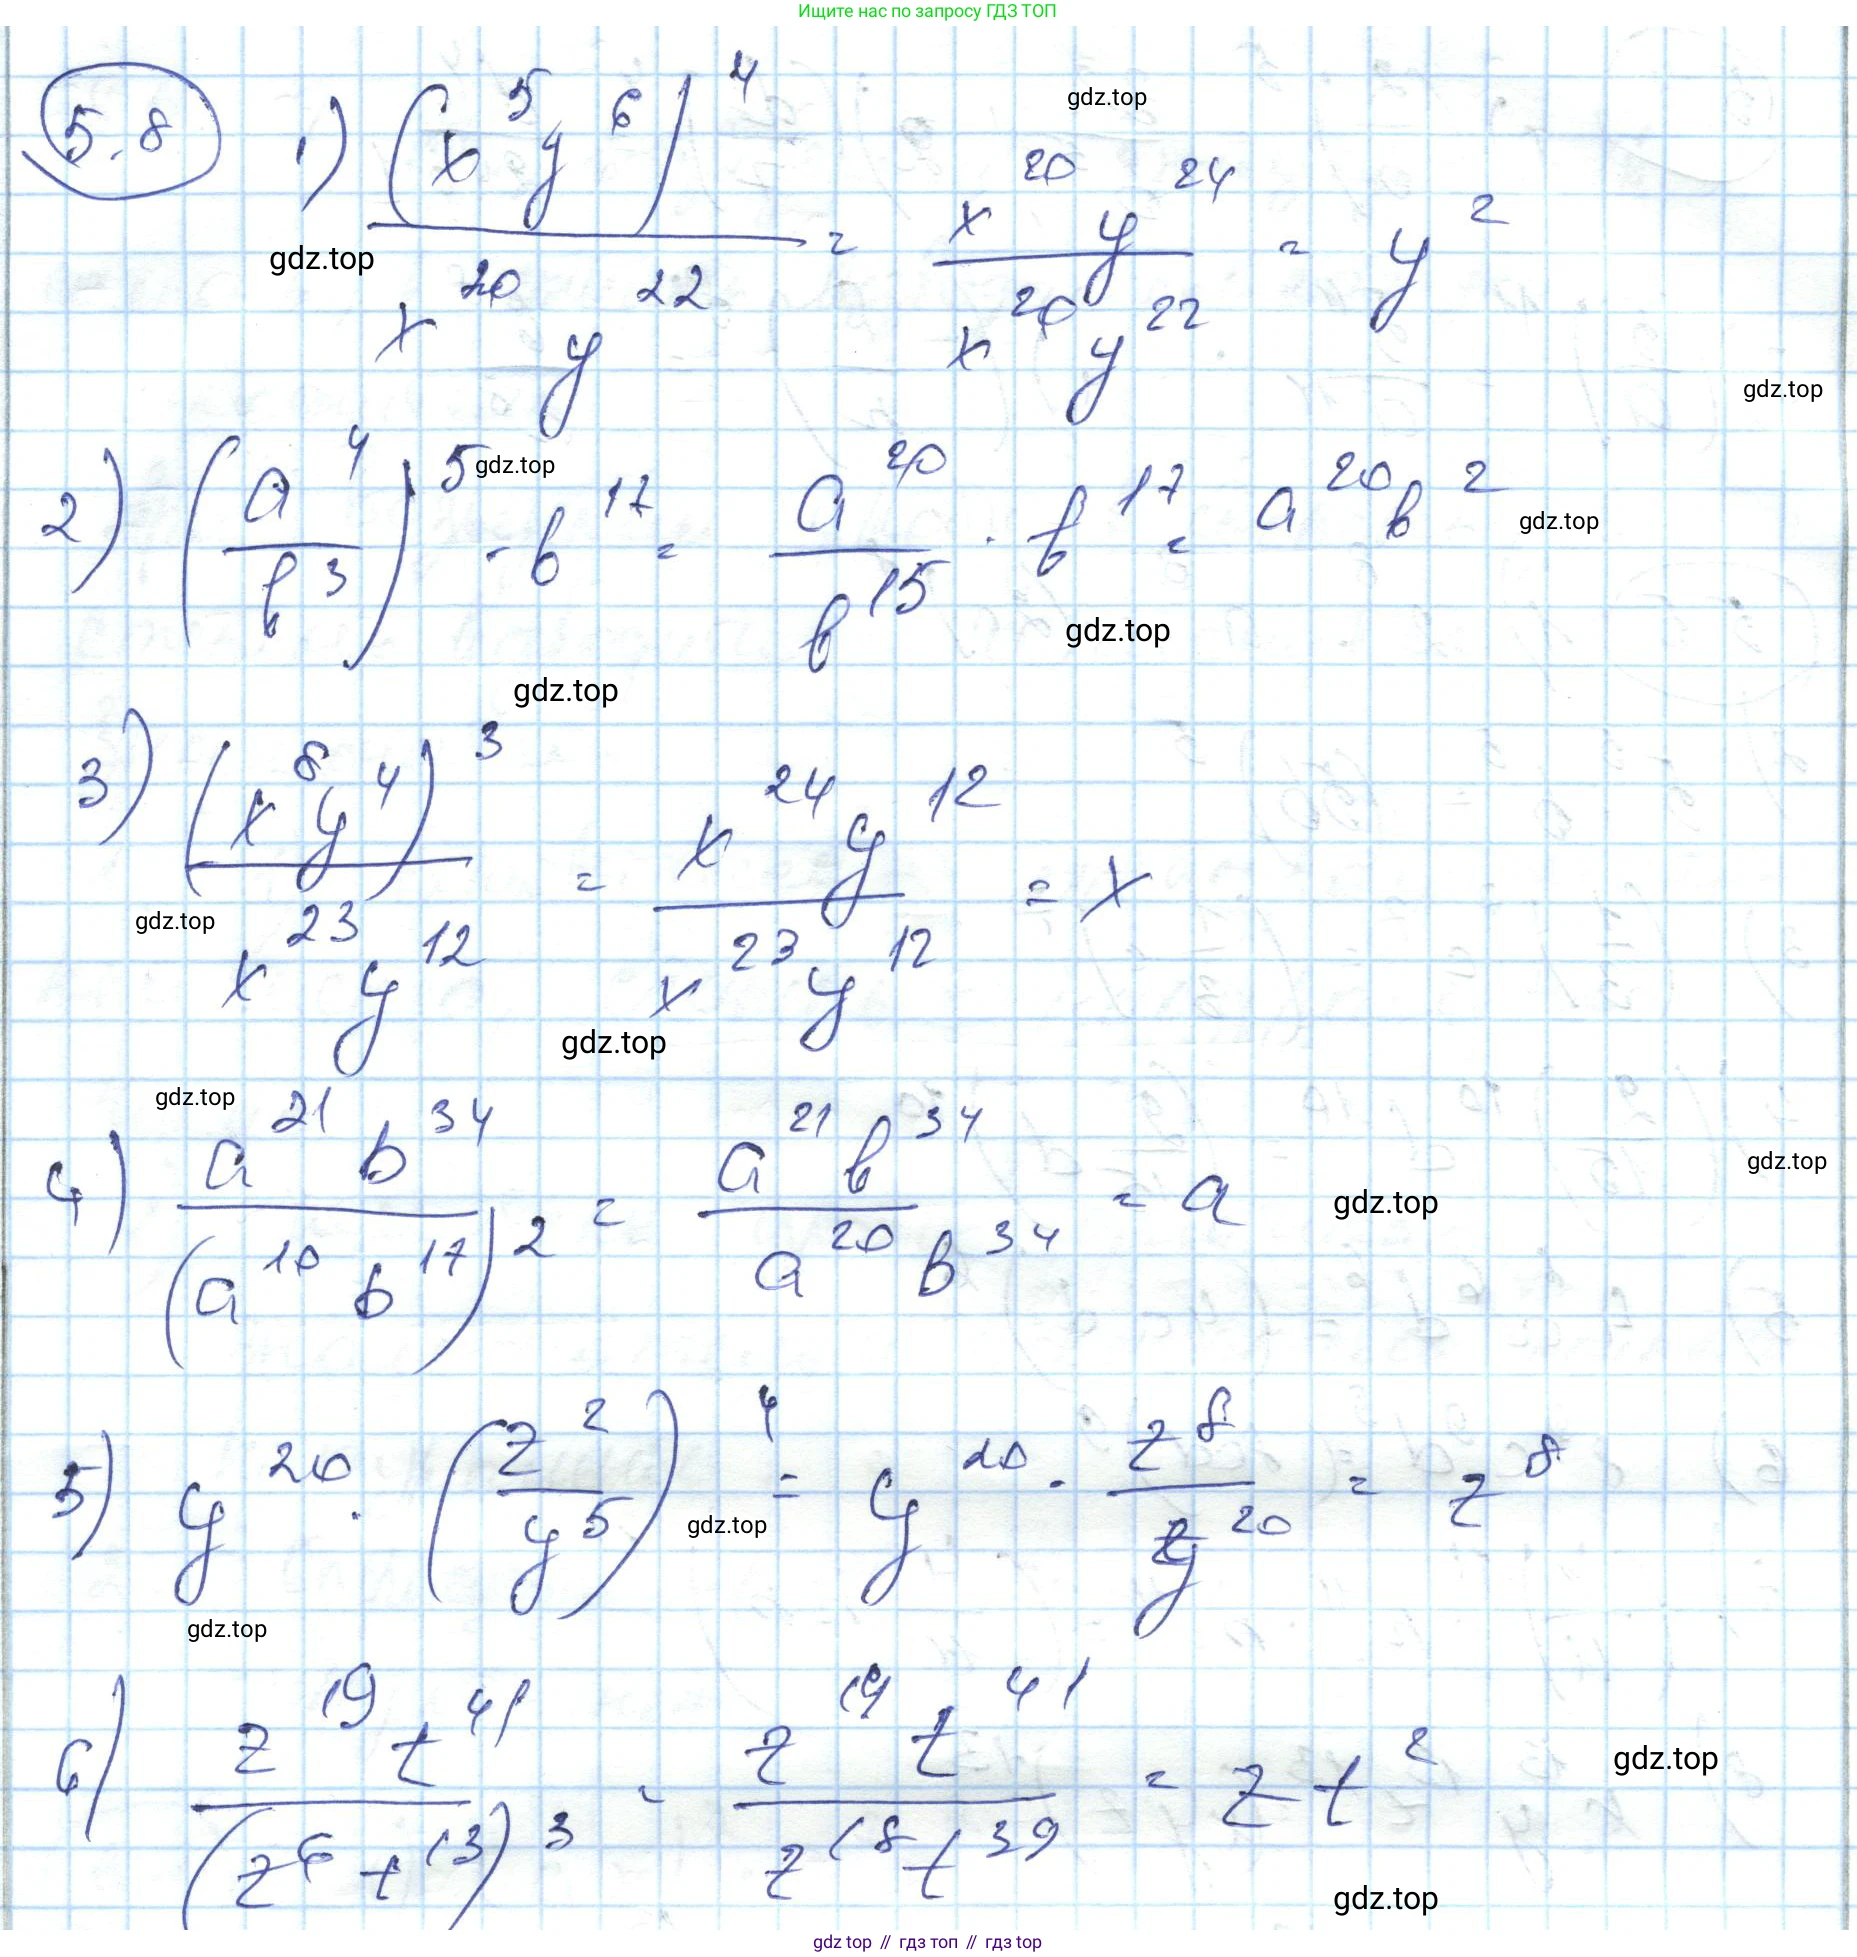 Ищите нас по запросу ГДЗ ТОП
5.8 1) (x^5 y^6)^4 / x^20 y^22 = x^20 y^24 / x^20 y^22 = y^2
gdz.top
gdz.top
gdz.top
2) (a^4 / b^3)^5 · b^17 = a^20 / b^15 · b^17 = a^20 b^2
gdz.top
gdz.top
gdz.top
gdz.top
3) (x^8 y^4)^3 / x^23 y^12 = x^24 y^12 / x^23 y^12 = x
gdz.top
gdz.top
gdz.top
4) a^21 b^34 / (a^10 b^17)^2 = a^21 b^34 / a^20 b^34 = a
gdz.top
gdz.top
5) y^20 · (z^2 / y^5)^4 = y^20 · z^8 / y^20 = z^8
gdz.top
gdz.top
6) z^19 t^41 / (z^6 t^13)^3 = z^19 t^41 / z^18 t^39 = z t^2
gdz.top
gdz.top
gdz top // гдз топ // гдз top